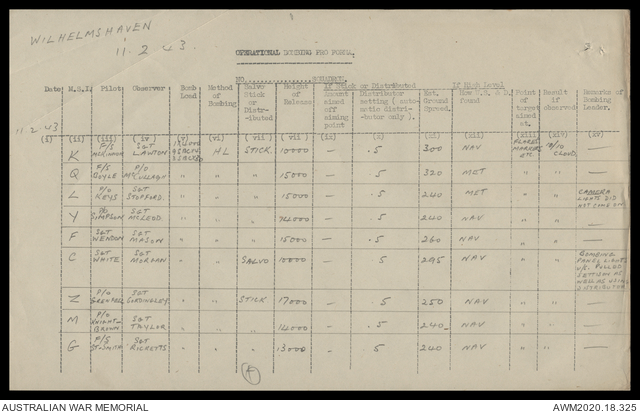 WILHELMSHAVEN
11.2.43.
OPERATIONAL BOMBING PRO FORMA.
NO. SQUADRON.
Date M.S.I. Pilot Observer Bomb Load Method of Bombing Salvo Stick or Distr-ibuted Height of Release If Stick or Distributed Amount aimed off aiming point Distributor setting (automatic distributor only). Est. Ground Speed. If High Level How W.S. & D. found Point of target aimed at. Result if observed Remarks of Bombing Leader.
11.2.43
(i) (ii) (iii) (iv) (v) (vi) (vii) (viii) (ix) (x) (xi) (xii) (xiii) (xiv) (xv)
K F/S SGT LAWTON HL STICK. 10000 — .5 300 NAV FLARES MARKERS ETC 10/10 CLOUD. —
Q F/S BOYLE P/O McCULLAGH " " " 15000 — .5 320 MET " " —
L P/O KEYS SGT STOPFORD. " " " 15000 — .5 240 MET " " CAMERA LIGHTS DID NOT COME ON
Y SIMPSON SGT McLEOD. " " " 14000 — .5 240 NAV " " —
F SGT WENDON SGT MASON " " " 15000 — .5 260 NAV " " —
C SGT WHITE SGT MORGAN " " SALVO 10000 — .5 295 NAV " " BOMBING PANEL LIGHTS U/S. PULLED AS WELL AS USING DISTRIBUTOR.
Z P/O SGT " " STICK 17000 — .5 250 NAV " " —
M P/O KNIGHT-BROWN SGT TAYLOR " " " 14000 — .5 240 NAV " " —
G F/S ST-SMITH SGT RICKETTS " " " 13000 — .5 240 NAV " " —
AUSTRALIAN WAR MEMORIAL AWM2020.18.325